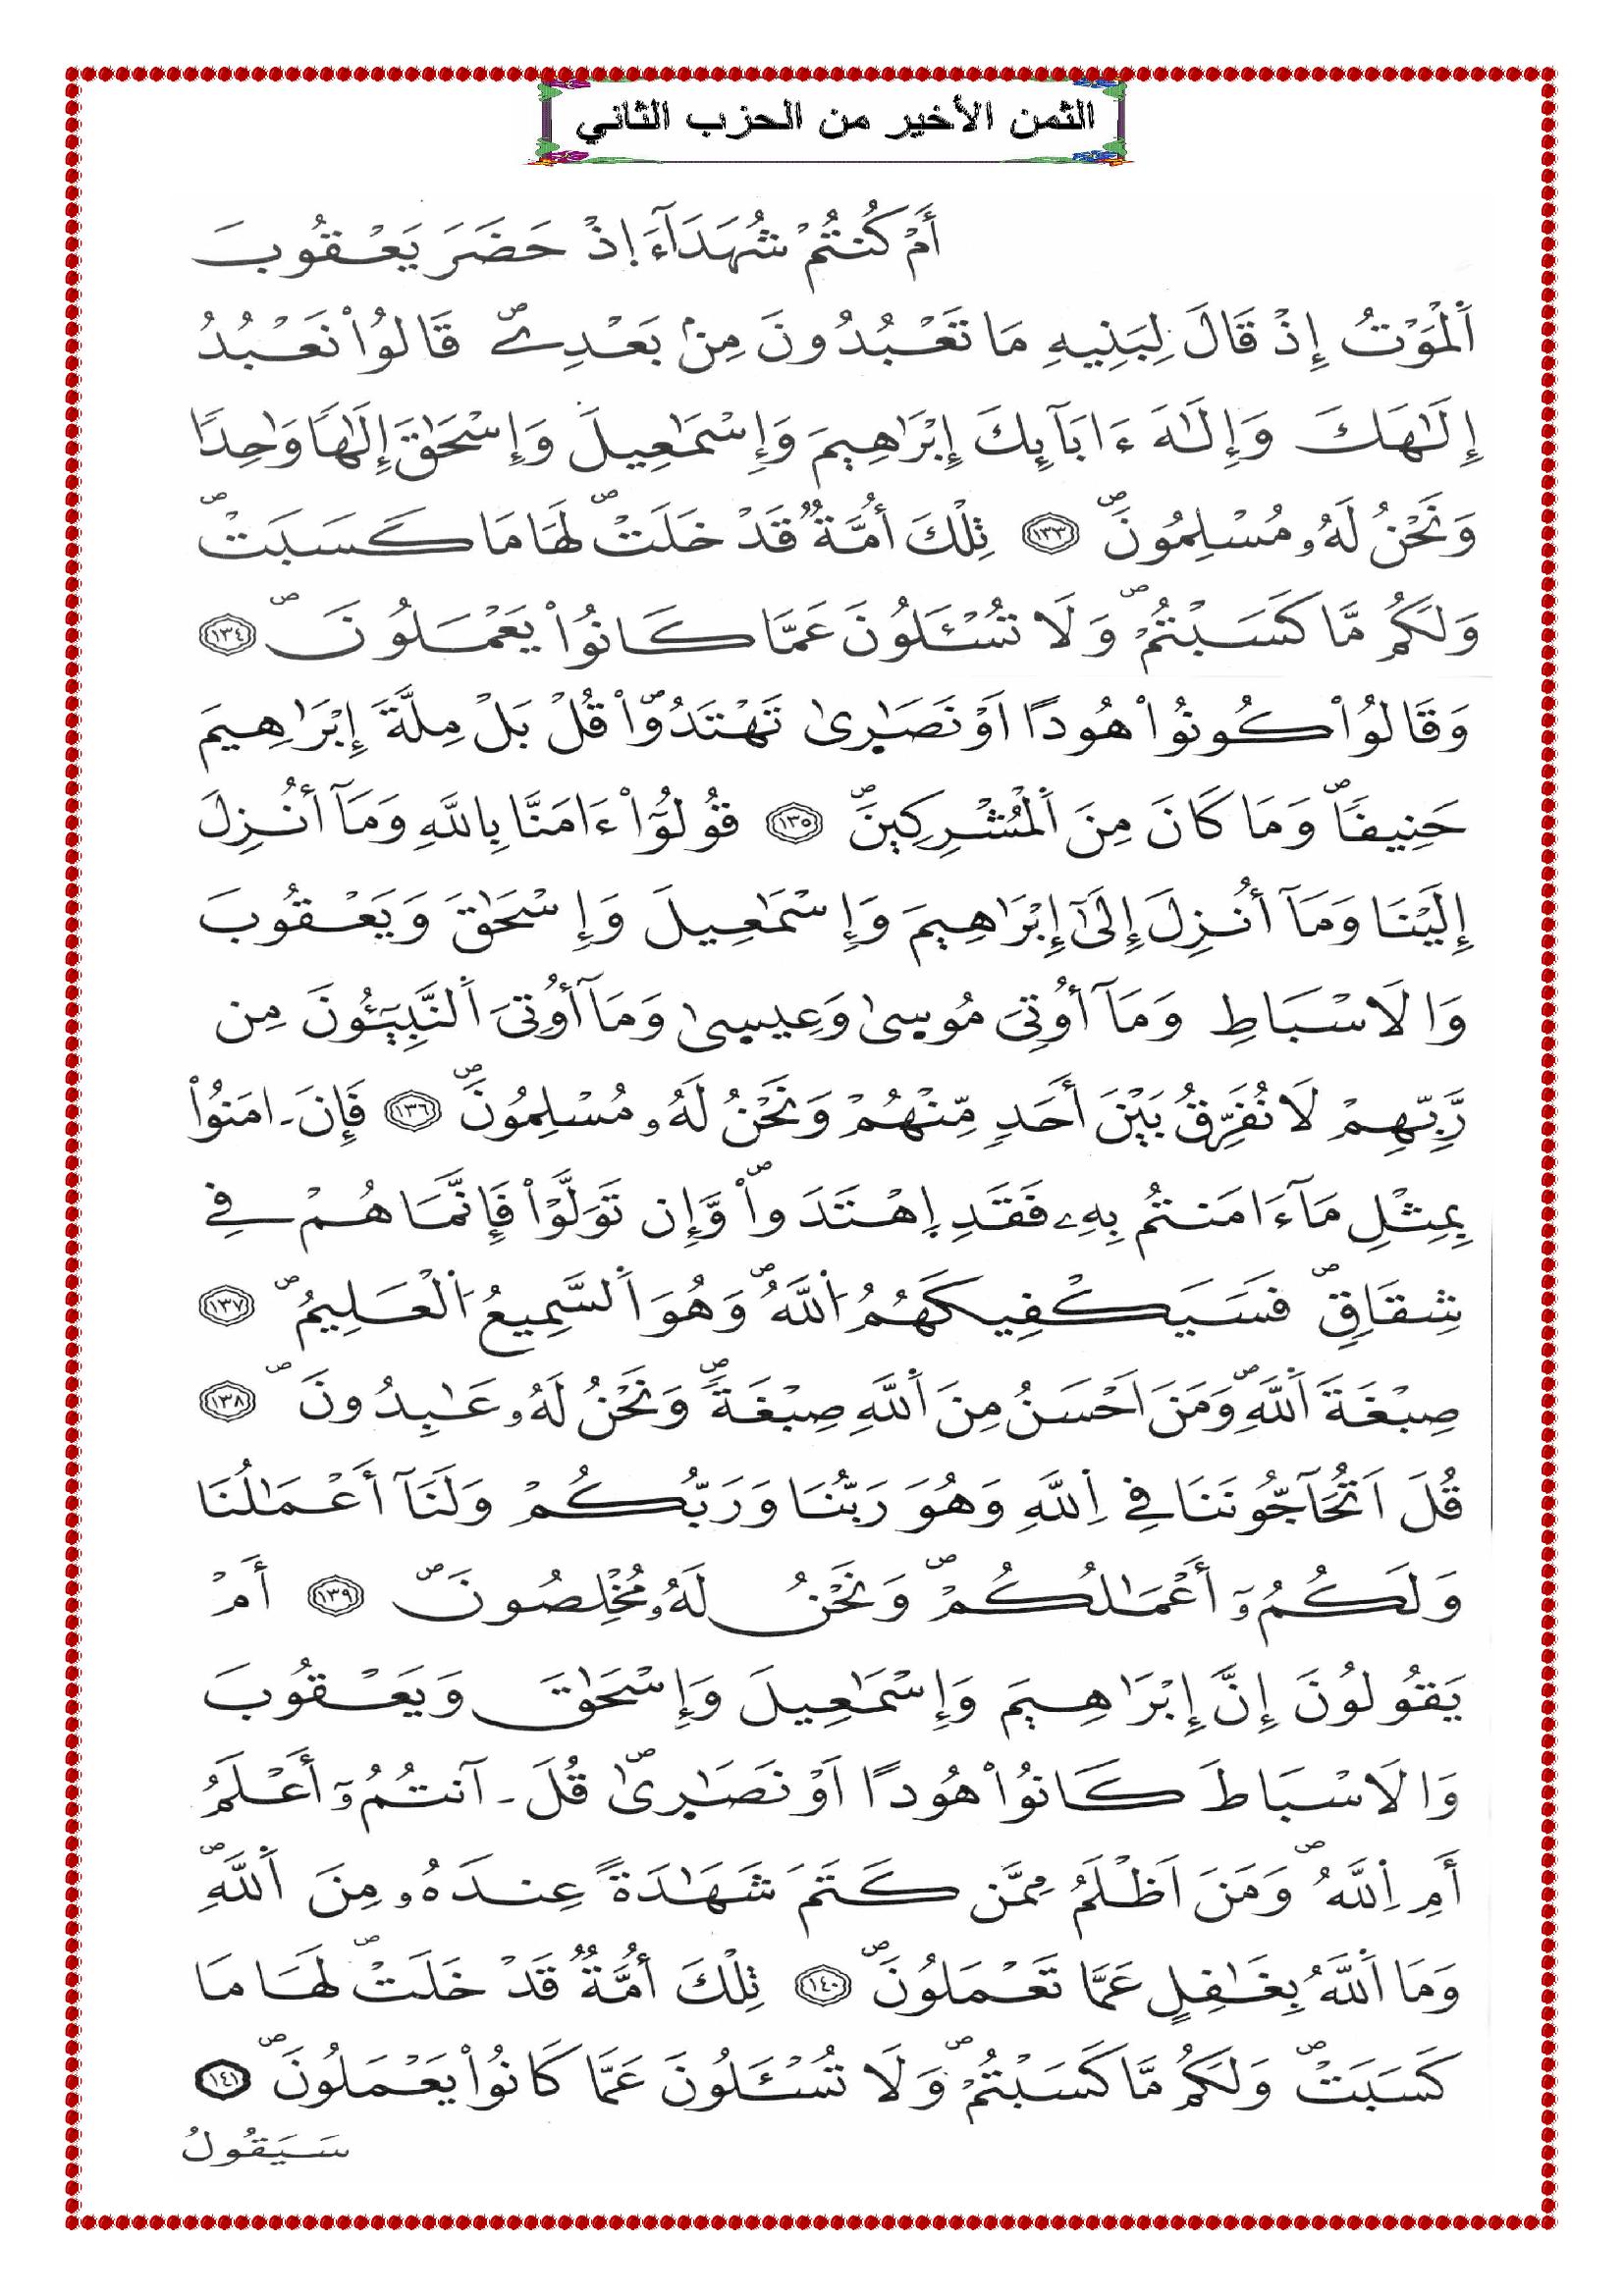 الثمن الأخير من الحزب الثاني
أَمْ كُنتُمْ شُهَدَآءَ اِذْ حَضَرَ يَعْقُوبَ
اَ۬لْمَوْتُ إِذْ قَالَ لِبَنِيهِ مَا تَعْبُدُونَ مِنۢ بَعْدِےۖ قَالُواْ نَعْبُدُ
إِلَٰهَكَ وَإِلَٰهَ ءَابَآئِكَ إِبْرَٰهِيمَ وَإِسْمَٰعِيلَ وَإِسْحَٰقَ إِلَٰهاٗ وَٰحِداٗ
وَنَحْنُ لَهُۥ مُسْلِمُونَۖ ١٣٣ تِلْكَ أُمَّةٞ قَدْ خَلَتْۖ لَهَا مَا كَسَبَتْۖ
وَلَكُم مَّا كَسَبْتُمْۖ وَلَا تُسْـَٔلُونَ عَمَّا كَانُواْ يَعْمَلُونَۖ ١٣٤
وَقَالُواْ كُونُواْ هُوداً اَوْ نَصَٰرٜىٰ تَهْتَدُواْۖ قُلْ بَلْ مِلَّةَ إِبْرَٰهِيمَ
حَنِيفاٗۖ وَمَا كَانَ مِنَ اَ۬لْمُشْرِكِينَۖ ١٣٥ قُولُوٓاْ ءَامَنَّا بِاللَّهِ وَمَآ أُنزِلَ
إِلَيْنَا وَمَآ أُنزِلَ إِلَىٰٓ إِبْرَٰهِيمَ وَإِسْمَٰعِيلَ وَإِسْحَٰقَ وَيَعْقُوبَ
وَالَاسْبَاطِ وَمَآ أُوتِيَ مُوسٜىٰ وَعِيسٜىٰ وَمَآ أُوتِيَ اَ۬لنَّبِيٓـُٔونَ مِن
رَّبِّهِمْ لَا نُفَرِّقُ بَيْنَ أَحَدٖ مِّنْهُمْ وَنَحْنُ لَهُۥ مُسْلِمُونَۖ ١٣٦ فَإِنَ اٰمَنُواْ
بِمِثْلِ مَآ ءَامَنتُم بِهِۦ فَقَدِ اِ۪هْتَدَواْۖ وَّإِن تَوَلَّوْاْ فَإِنَّمَا هُمْ فِي
شِقَاقٖۖ فَسَيَكْفِيكَهُمُ اُ۬للَّهُۖ وَهُوَ اَ۬لسَّمِيعُ اُ۬لْعَلِيمُۖ ١٣٧
صِبْغَةَ اَ۬للَّهِۖ وَمَنَ اَحْسَنُ مِنَ اَ۬للَّهِ صِبْغَةٗۖ وَنَحْنُ لَهُۥ عَٰبِدُونَۖ ١٣٨
قُلَ اَتُحَآجُّونَنَا فِي اِ۬للَّهِ وَهُوَ رَبُّنَا وَرَبُّكُمْ وَلَنَآ أَعْمَٰلُنَا
وَلَكُمُۥٓ أَعْمَٰلُكُمْۖ وَنَحْنُ لَهُۥ مُخْلِصُونَۖ ١٣٩ أَمْ
يَقُولُونَ إِنَّ إِبْرَٰهِيمَ وَإِسْمَٰعِيلَ وَإِسْحَٰقَ وَيَعْقُوبَ
وَالَاسْبَاطَ كَانُواْ هُوداً اَوْ نَصَٰرٜىٰۖ قُلَ آنتُمُۥٓ أَعْلَمُ
أَمِ اِ۬للَّهُۖ وَمَنَ اَظْلَمُ مِمَّن كَتَمَ شَهَٰدَةً عِندَهُۥ مِنَ اَ۬للَّهِۖ
وَمَا اَ۬للَّهُ بِغَٰفِلٍ عَمَّا تَعْمَلُونَۖ ١٤٠ تِلْكَ أُمَّةٞ قَدْ خَلَتْۖ لَهَا مَا
كَسَبَتْۖ وَلَكُم مَّا كَسَبْتُمْۖ وَلَا تُسْـَٔلُونَ عَمَّا كَانُواْ يَعْمَلُونَۖ ١٤١
سَيَقُولُ